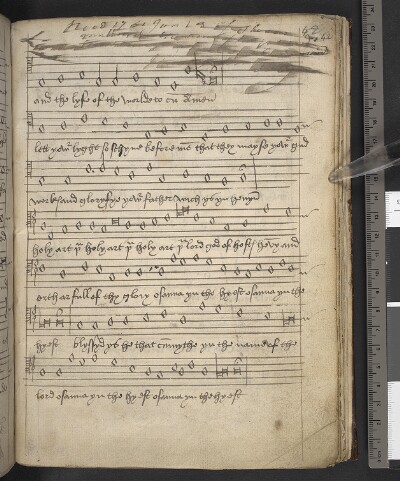 and the lyfe of the worlde to cū amen
lett yowr lyght so schyne before me that they may se yowr gud
workes and gloryfye yowr father wich ys yn hevyn
holy art yᵘ holy art yᵘ holy art yᵘ lord god of hostes hevy and
erth ar full of thy glory osanna yn the hyest osanna yn the
hyest blyssyd ys he that cūmythe yn the name of the
lord osanna yn the hyest osanna yn the hyest